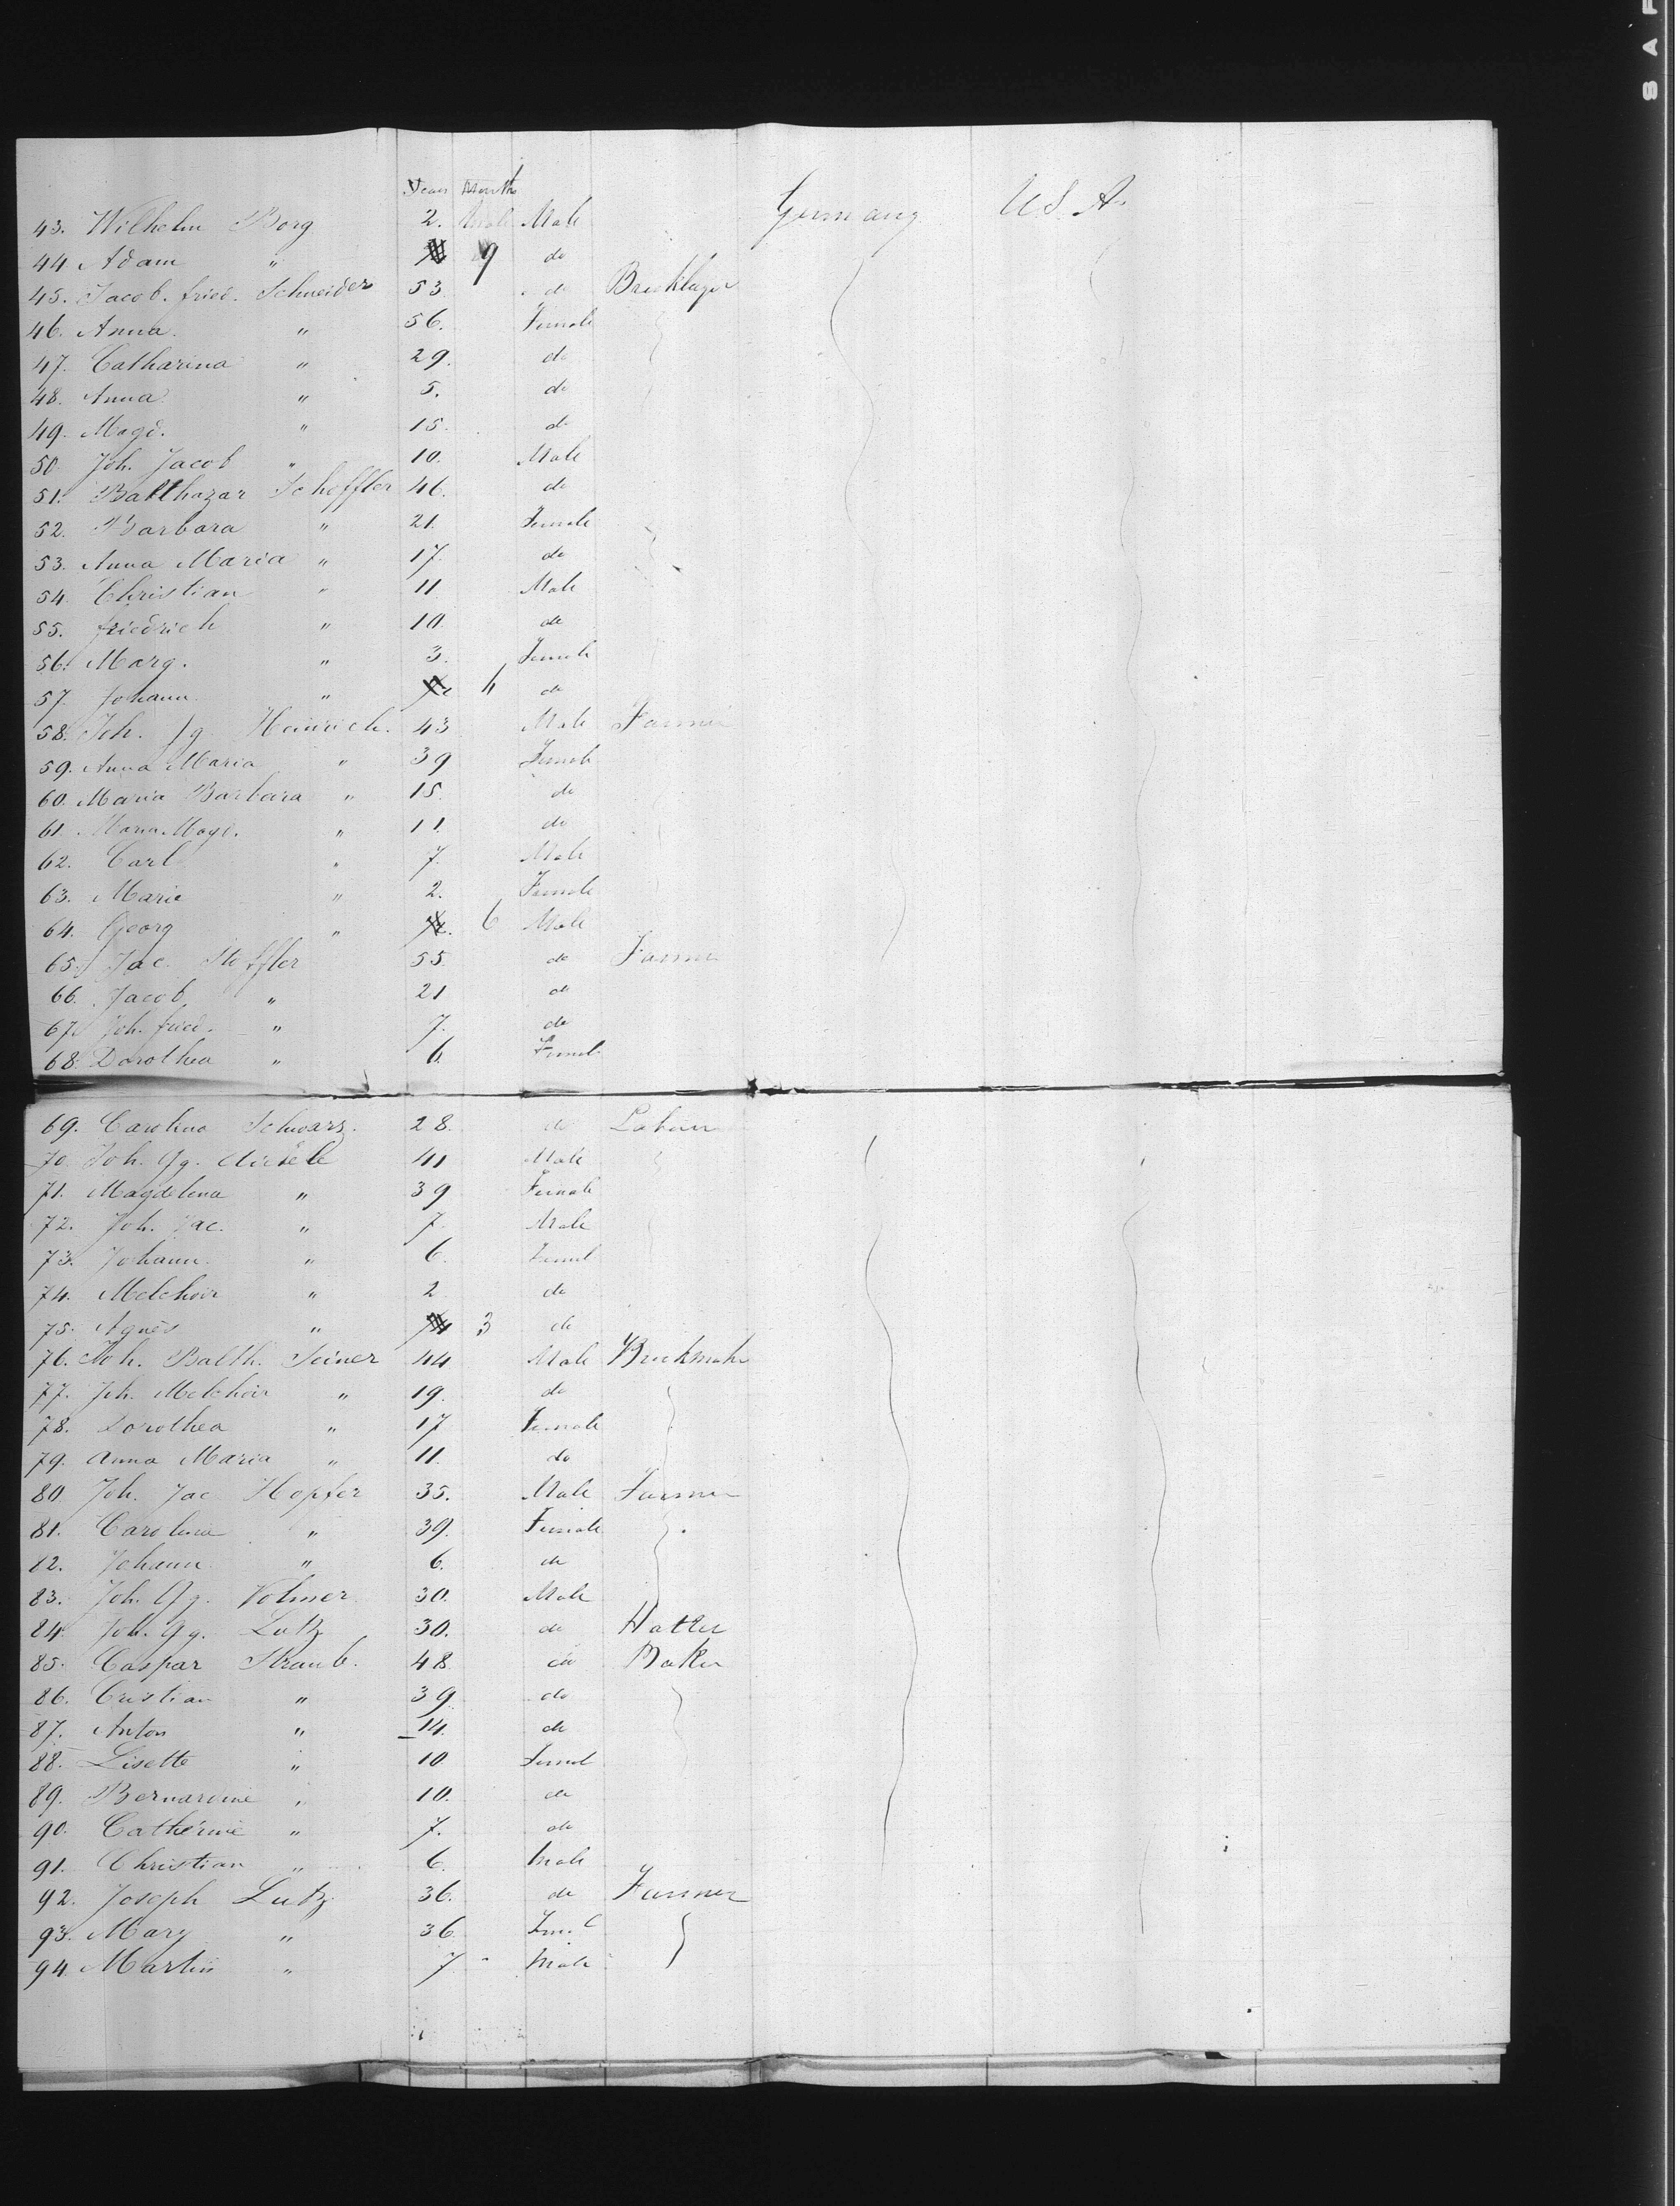 Years Month
43. Wilhelm Borg 2. Male Germany U.S.A.
44. Adam " 9 do
45. Jacob. fried. Schneider 53 do Bricklayer
46. Anna " 56. Female
47. Catharina " 29. do
48. Anna " 5. do
49. Magd. " 15. do
50. Joh. Jacob " 10. Male
51. Balthazar Schoffler 46. do
52. Barbara " 21. Female
53. Anna Maria " 17. do
54. Christian " 11 Male
55. friedrich " 10 do
56. Marg. " 3. Female
57. Johann " do
58. Joh. Jg. Heinrich. 43 Male Farmer
59. Anna Maria " 39 Female
60. Maria Barbara " 15. do
61. Maria Magd. " 11. do
62. Carl " 7. Male
63. Marie " 2. Female
64. Georg " 6 Male
65. Jac. Stoffler 55. do Farmer
66. Jacob " 21 do
67. Joh. fried. " 7. do
68. Dorothea " 6. Femal
69. Carolina Schwarz. 28. do
70. Joh. Gg. 41 Male
71. Magdelena " 39 Female
72. Joh. Jac. " 7. Male
73. Johann. " 6. Femal
74. Melchoir " 2 do
75. Agnes " 3 do
76. Joh. Balth. Seiner 44 Male Brickmaker
77. Joh. Melchoir " 19. do
78. Dorothea " 17 Female
79. Anna Maria " 11. do
80. Joh. Jac Hopfer 35. Male Farmer
81. Carolina " 39. Female
82. Johann " 6. do
83. Joh. Gg. Volmer 30. Male
84. Joh. Gg. Lutz 30. do Hatter
85. Caspar Straub. 48 do Baker
86. Cristian " 39 do
87. Anton " 14. do
88. Lisette " 10 Femal
89. Bernardine " 10. do
90. Catherine " 7. do
91. Christian " 6. Male
92. Joseph Lutz 36. do Farmer
93. Mary " 36 Femal
94. Martin " 7 Male